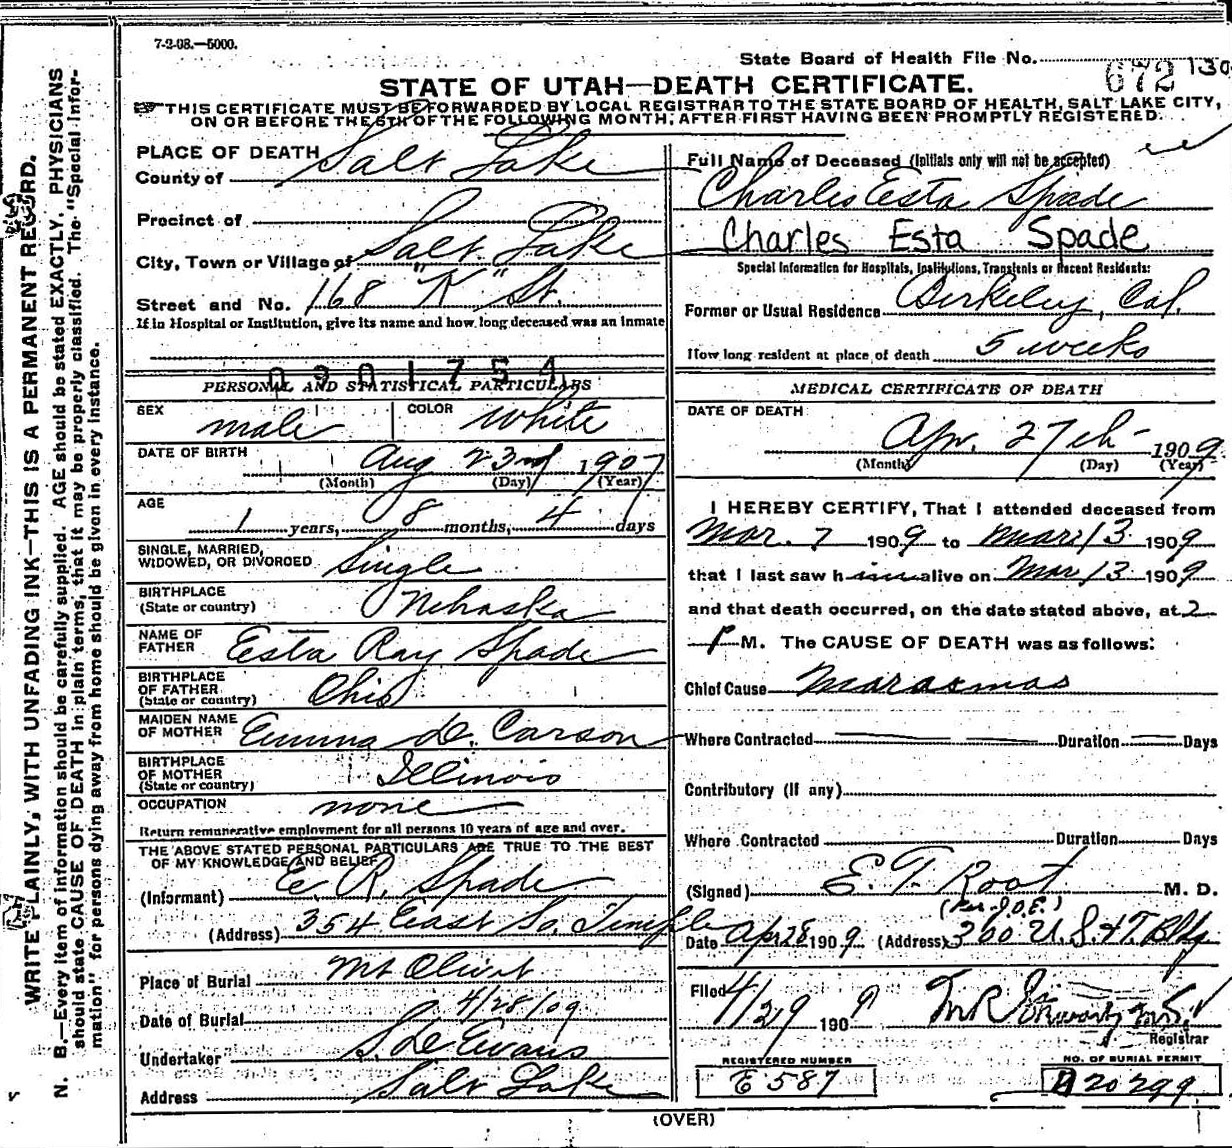 7-2-08.—5000.
State Board of Health File No. 672 130
STATE OF UTAH—DEATH CERTIFICATE.
THIS CERTIFICATE MUST BE FORWARDED BY LOCAL REGISTRAR TO THE STATE BOARD OF HEALTH, SALT LAKE CITY,
ON OR BEFORE THE 5TH OF THE FOLLOWING MONTH, AFTER FIRST HAVING BEEN PROMPTLY REGISTERED.
WRITE PLAINLY, WITH UNFADING INK—THIS IS A PERMANENT RECORD.
N. B.—Every item of information should be carefully supplied. AGE should be stated EXACTLY. PHYSICIANS
should state CAUSE OF DEATH in plain terms, that it may be properly classified. The "Special Infor-
mation" for persons dying away from home should be given in every instance.
PLACE OF DEATH
County of Salt Lake
Precinct of
City, Town or Village of Salt Lake
Street and No. 168 "K" St.
If in Hospital or Institution, give its name and how long deceased was an inmate
0901754
PERSONAL AND STATISTICAL PARTICULARS
SEX male COLOR white
DATE OF BIRTH Aug 23rd 1907
(Month) (Day) (Year)
AGE
1 years, 8 months, 4 days
SINGLE, MARRIED,
WIDOWED, OR DIVORCED Single
BIRTHPLACE
(State or country) Nebraska
NAME OF
FATHER Esta Ray Spade
BIRTHPLACE
OF FATHER
(State or country) Ohio
MAIDEN NAME
OF MOTHER Emma De. Carson
BIRTHPLACE
OF MOTHER
(State or country) Illinois
OCCUPATION none
Return remunerative employment for all persons 10 years of age and over.
THE ABOVE STATED PERSONAL PARTICULARS ARE TRUE TO THE BEST
OF MY KNOWLEDGE AND BELIEF
(Informant) E R. Spade
(Address) 354 East So. Temple
Place of Burial Mt Olivet
Date of Burial 4/28/09
Undertaker S. De Evans
Address Salt Lake
Full Name of Deceased (Initials only will not be accepted)
Charles Esta Spade
Charles Esta Spade
Special Information for Hospitals, Institutions, Transients or Recent Residents:
Former or Usual Residence Berkeley, Cal.
How long resident at place of death 5 weeks
MEDICAL CERTIFICATE OF DEATH
DATE OF DEATH
Apr. 27th 1909
(Month) (Day) (Year)
I HEREBY CERTIFY, That I attended deceased from
Mar. 7 1909 to Mar 13 1909
that I last saw him alive on Mar 13 1909
and that death occurred, on the date stated above, at 2
P M. The CAUSE OF DEATH was as follows:
Chief Cause Marasmas
Where Contracted Duration Days
Contributory (If any)
Where Contracted Duration Days
(Signed) E. T. Root M. D.
(Per. J.O.E.)
Date Apr 28 1909 (Address) 300 U. S. + T. Bldg
Filed 4/29 1909
Registrar
REGISTERED NUMBER
E 587
NO. OF BURIAL PERMIT
A 20299
(OVER)